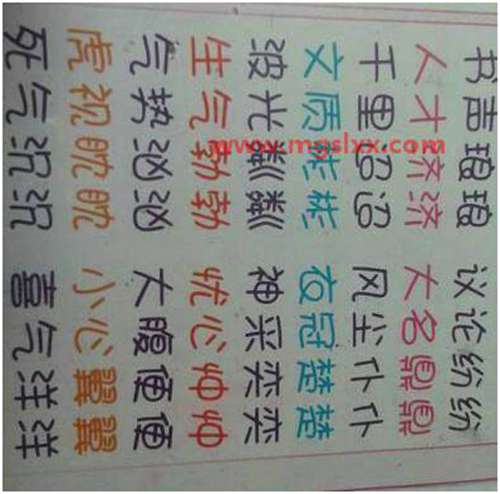 书声琅琅 议论纷纷
人才济济 大名鼎鼎
千里迢迢 风尘仆仆
文质彬彬 衣冠楚楚
波光粼粼 神采奕奕
生气勃勃 忧心忡忡
气势汹汹 大腹便便
虎视眈眈 小心翼翼
死气沉沉 喜气洋洋
www.mgslxx.com